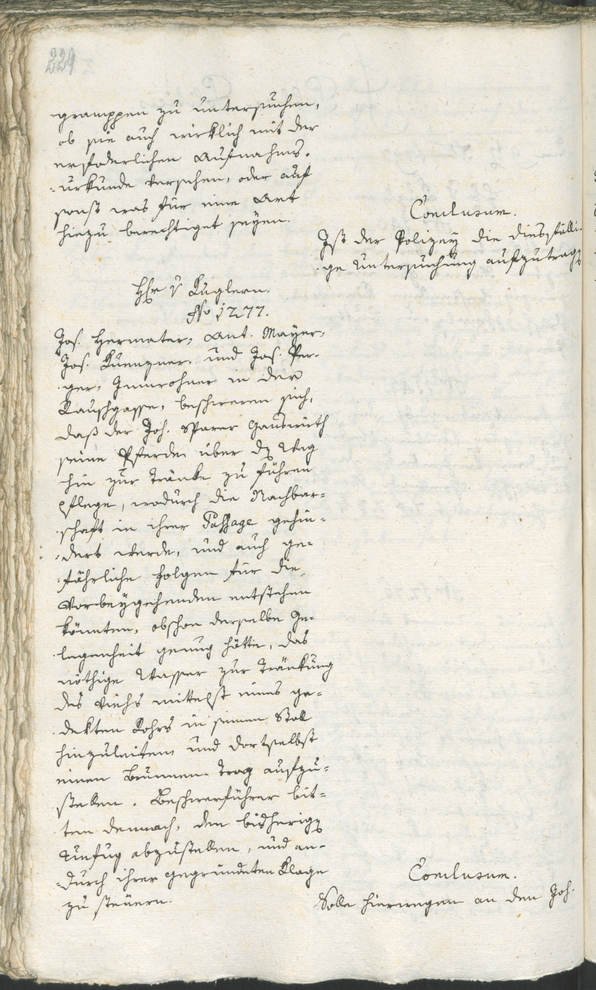 229
gramppen zu untersuchen,
ob sie auch wirklich mit der
erforderlichen Aufnahms-
urkunde versehen, oder auf
sonst was für eine Art
hiezu berechtiget seyen.
Conclusum.
Ist der Polizey die diesfälli-
ge Untersuchung aufzutragen
Hr v Kuglern.
No 1277.
Jos. Hermeter, Ant. Mayer,
Jos. Kuenzner, und Jos. Per-
ger, Innwohner in der
Rauschgasse, beschweren sich,
daß der Joh. Sparer Gastwirth
seine Pferde über den Weg
hin zur Tränke zu führen
pflege, wodurch die Nachbar-
schaft in ihrer Passage gehin-
dert werde, und auch ge-
fährliche Folgen für die
Vorbeygehenden entstehen
könnten, obschon derselbe Ge-
legenheit genug hätte, das
nöthige Wasser zur Tränkung
des Viehs mittelst eines ge-
dekten Rohrs in seinen Stal
hinzuleiten und dortselbst
einen Brunnen Trog aufzu-
stellen. Beschwerführer bit-
ten demnach, den bisherigen
Unfug abzustellen, und an-
durch ihrer gegründeten Klage
zu steuern.
Conclusum.
Solle hierwegen an den Joh.